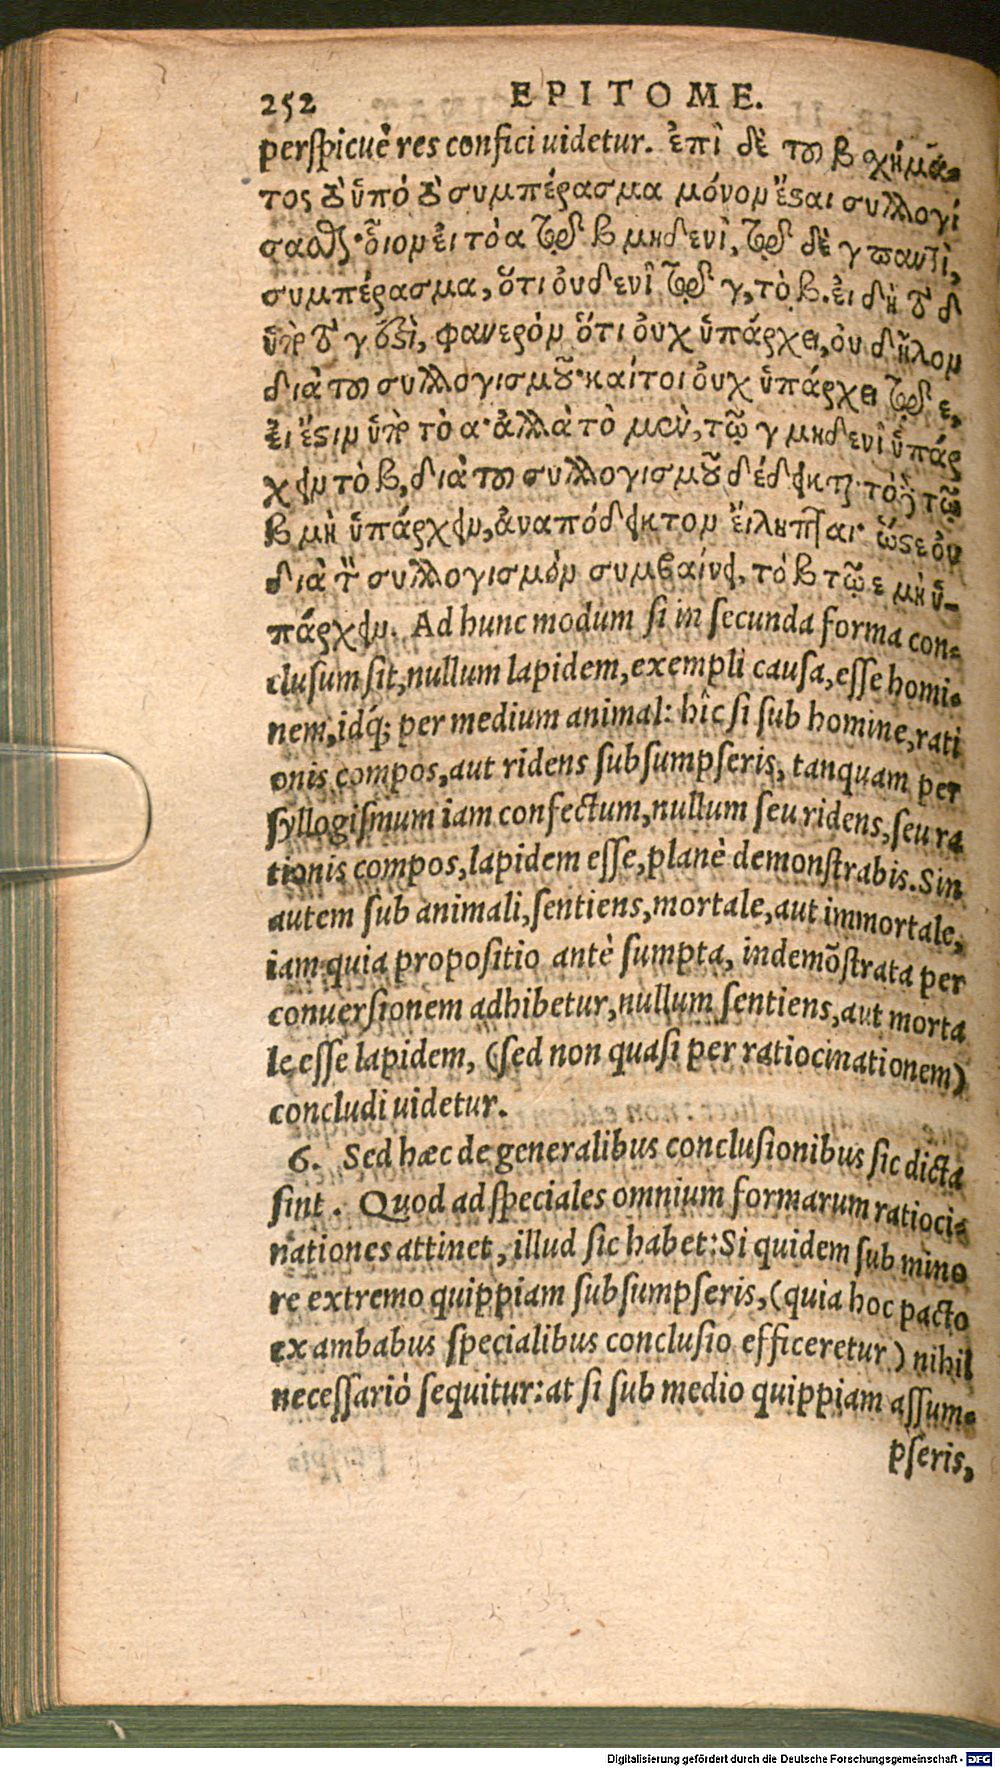 252 EPITOME.
perſpicuè res confici uidetur. ἐπὶ δὲ τοῦ β σχήμα-
τος τὸ ὑπὸ τὸ συμπέρασμα μόνον ἔσται συλλογί
σασθαι· οἷον εἰ τὸ α τῷ β μηδενὶ, τῷ δὲ γ παντὶ,
συμπέρασμα, ὅτι οὐδενὶ τῷ γ, τὸ β. εἰ δὴ τὸ δ
ὑπὸ τὸ γ ἐστὶ, φανερὸν ὅτι οὐχ ὑπάρχει, οὐ δῆλον
διὰ τοῦ συλλογισμοῦ· καίτοι οὐχ ὑπάρχει τῷ ε,
εἰ ἔστιν ὑπὸ τὸ α· ἀλλὰ τὸ μὲν, τῷ γ μηδενὶ ὑπάρ
χειν τὸ β, διὰ τοῦ συλλογισμοῦ δέδεικται· τὸ δὲ τῷ
β μὴ ὑπάρχειν, ἀναπόδεικτον εἴληπται· ὥστε οὐ
διὰ τὸν συλλογισμὸν συμβαίνει, τὸ β τῷ ε μὴ ὑ-
πάρχειν. Ad hunc modum ſi in ſecunda forma con-
cluſum ſit, nullum lapidem, exempli cauſa, eſſe homi-
nem, idq́; per medium animal: hîc ſi ſub homine, rati
onis compos, aut ridens ſubſumpſeris, tanquam per
ſyllogiſmum iam confectum, nullum ſeu ridens, ſeu ra
tionis compos, lapidem eſſe, planè demonſtrabis. Sin
autem ſub animali, ſentiens, mortale, aut immortale,
iam quia propoſitio antè ſumpta, indemõſtrata per
conuerſionem adhibetur, nullum ſentiens, aut morta
le eſſe lapidem, (ſed non quaſi per ratiocinationem)
concludi uidetur.
6. Sed hæc de generalibus concluſionibus ſic dicta
ſint. Quod ad ſpeciales omnium formarum ratioci-
nationes attinet, illud ſic habet: Si quidem ſub mino
re extremo quippiam ſubſumpſeris, (quia hoc pacto
ex ambabus ſpecialibus concluſio efficeretur) nihil
neceſſariò ſequitur: at ſi ſub medio quippiam aſſum-
pſeris,
Digitalisierung gefördert durch die Deutsche Forschungsgemeinschaft - DFG